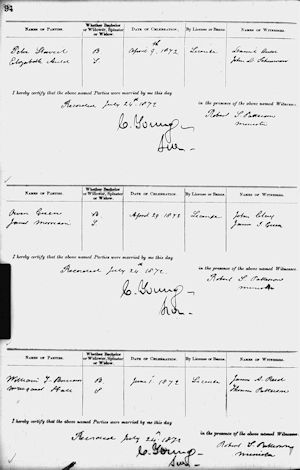 94
NAMES OF PARTIES. Whether Bachelor or Widower, Spinster or Widow. DATE OF CELEBRATION. By License or Banns. NAMES OF WITNESSES.
Peter B April 9th 1872 License Daniel
Elizabeth Auld S John D.
I hereby certify that the above named Parties were married by me this day
in the presence of the above named Witnesses.
Received July 24th 1872
Robert S. Patterson
Minister
C. Young
NAMES OF PARTIES. Whether Bachelor or Widower, Spinster or Widow. DATE OF CELEBRATION. By License or Banns. NAMES OF WITNESSES.
Owen Green B April 29 1872 License John
Morrison S James J. Green
I hereby certify that the above named Parties were married by me this day
in the presence of the above named Witnesses.
Received July 24th 1872
Robert S. Patterson
Minister
C. Young
NAMES OF PARTIES. Whether Bachelor or Widower, Spinster or Widow. DATE OF CELEBRATION. By License or Banns. NAMES OF WITNESSES.
William B June 1 1872 License James A. Reid
Margaret Hall S Thomas Patterson
I hereby certify that the above named Parties were married by me this day
in the presence of the above named Witnesses.
Received July 24th 1872
Robert S. Patterson
Minister
C. Young